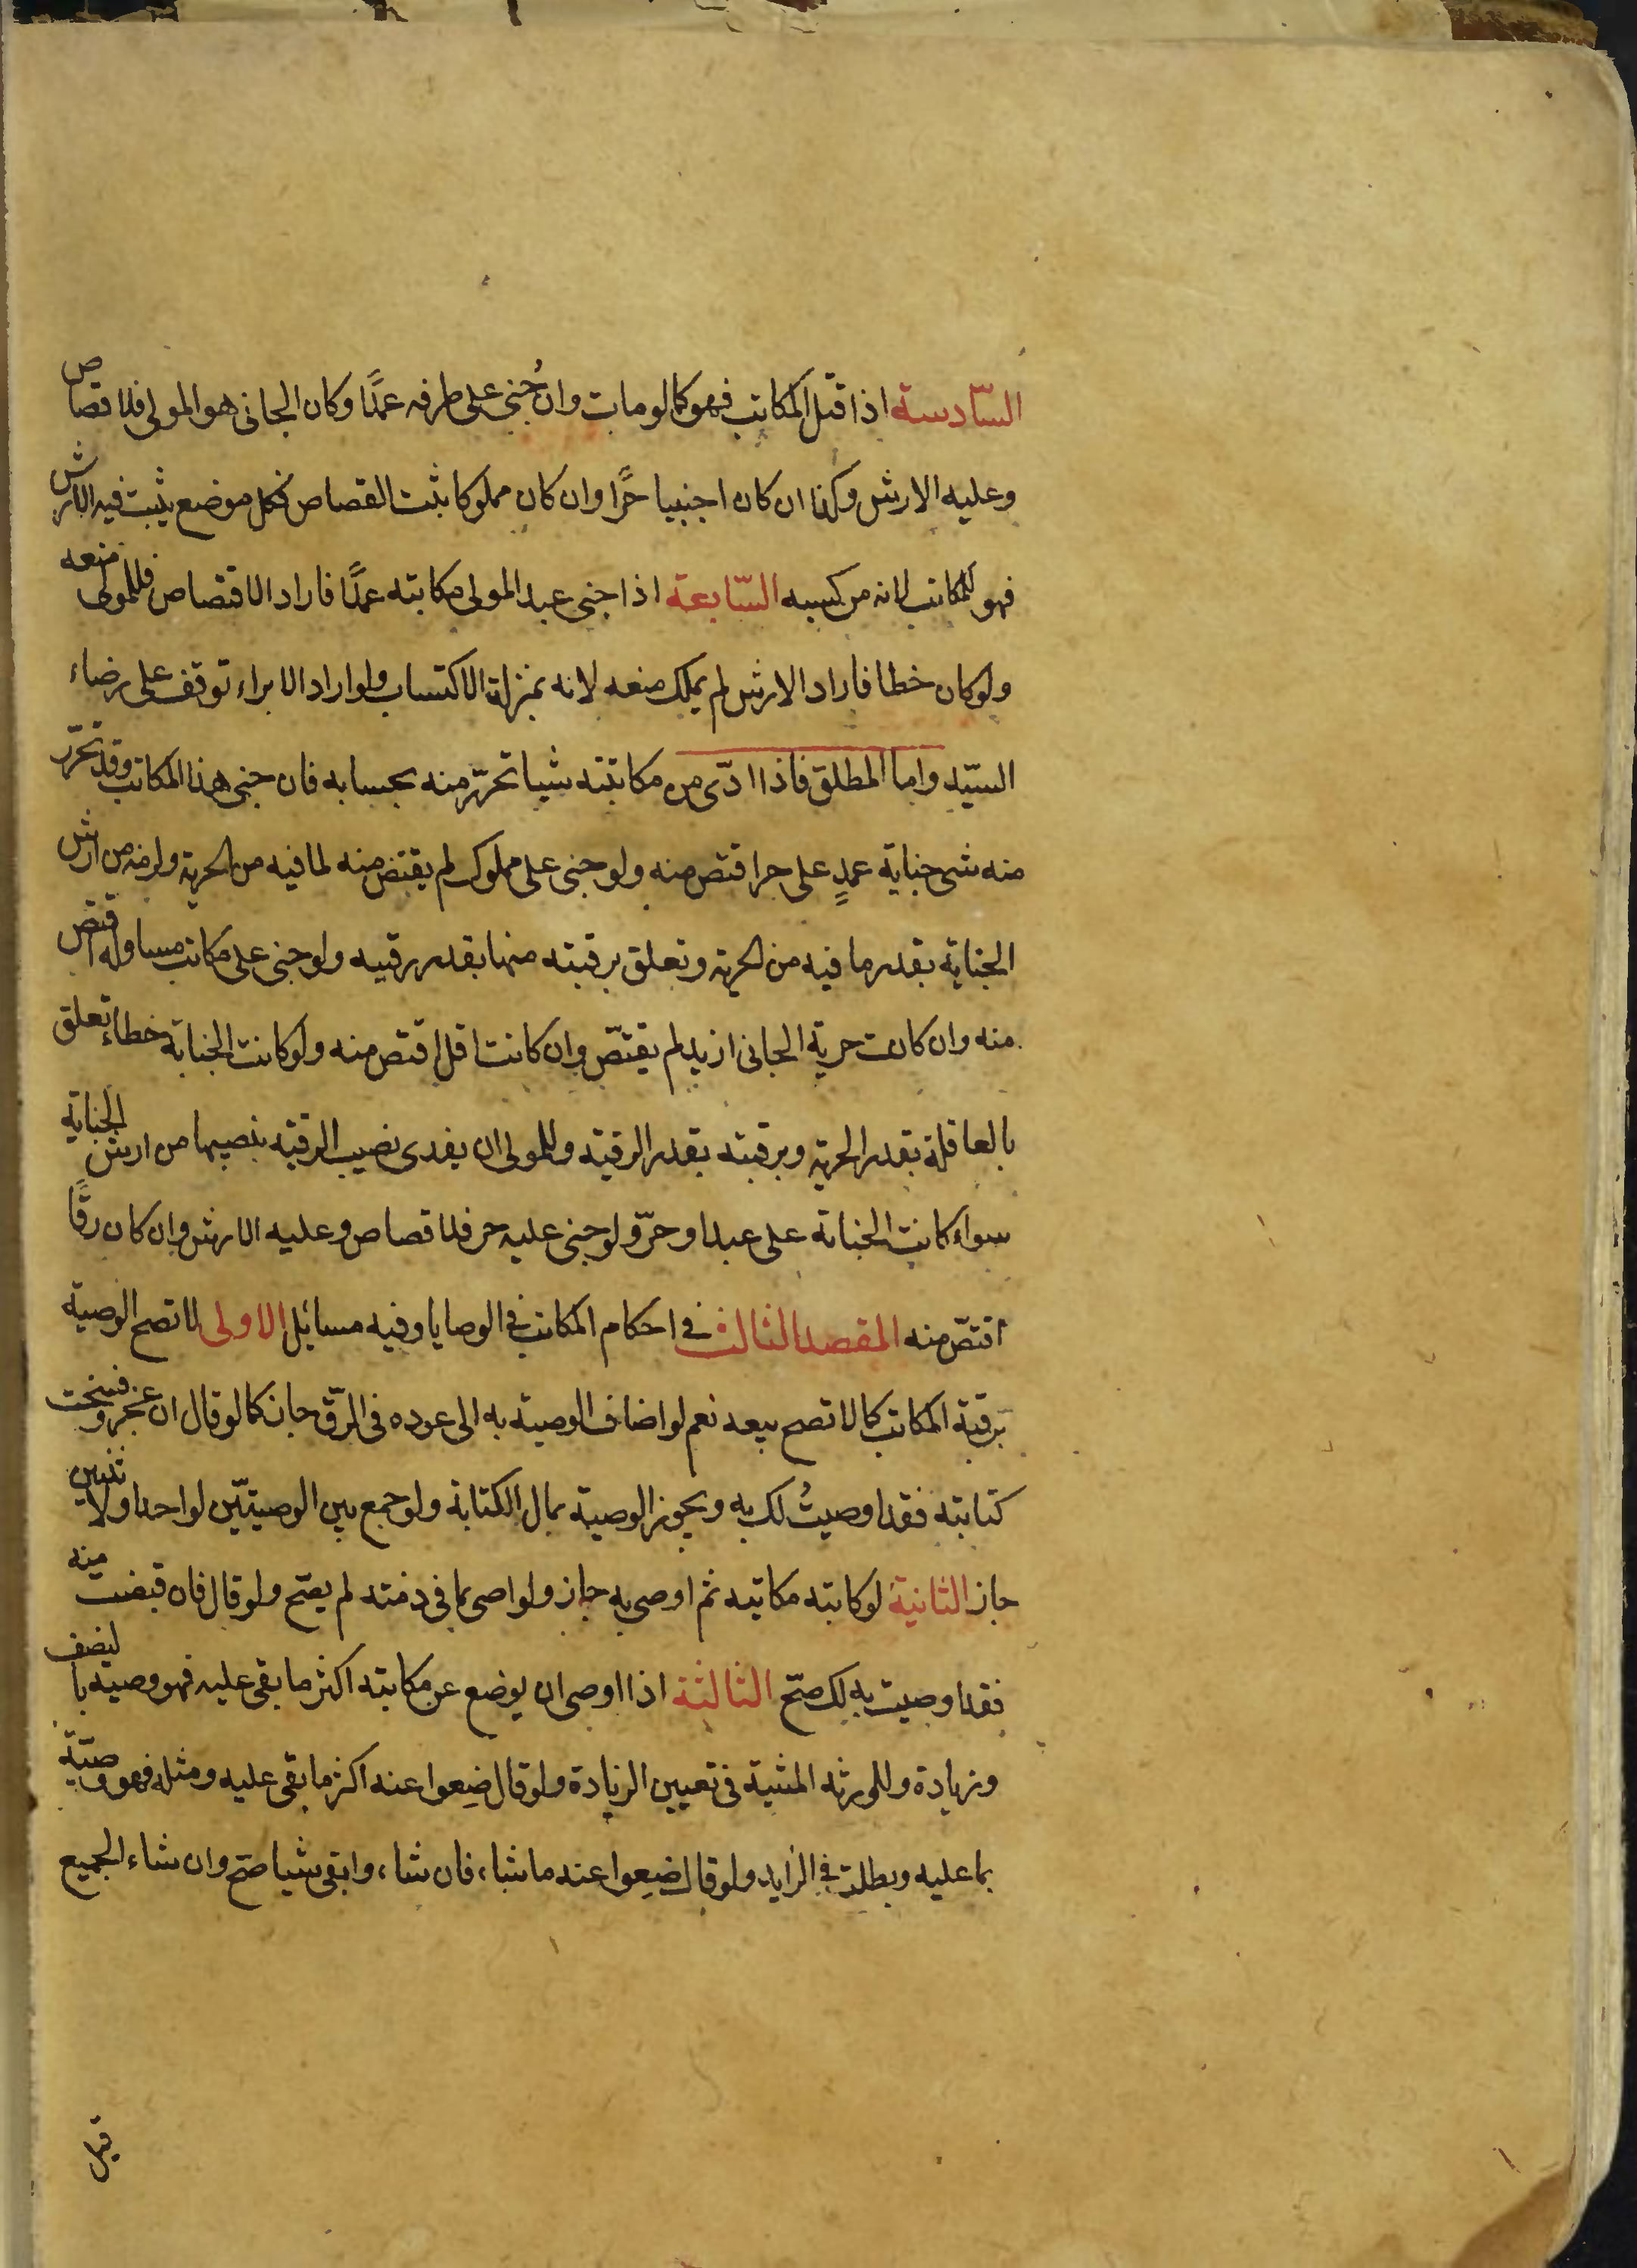 السّادسة اذا قتل المكاتب فهو كما لو مات وان جُنى على طرفه عمدًا وكان الجانى هو المولى فلا قصاص
وعليه الارش وكذا ان كان اجنبيا حرًا وان كان مملوكا ثبت القصاص فكل موضع يثبت فيه الارش
فهو للمكاتب لانه من كسبه السّابعة اذا جنى عبد المولى مكاتبه عمدًا فاراد الاقتصاص فللمولى منعه
ولو كان خطا فاراد الارش لم يملك منعه لانه بمنزلة الاكتساب ولو اراد الابراء توقف على رضاء
السيّد واما المطلق فاذا ادّى من مكاتبته شيا تحرّر منه بحسابه فان جنى هذا المكاتب وقد تحرّر
منه شى جناية عمدٍ على حر اقتص منه ولو جنى على مملوك لم يقتص منه لما فيه من الحرية ولزمه من ارش
الجناية بقدر ما فيه من الحرية وتعلق برقبته منها بقدر رقيه ولو جنى على مكاتب مساو له اقتص
منه وان كانت حرية الجانى ازيد لم يقتصّ وان كانت اقل اقتص منه ولو كانت الجناية خطاء تعلق
بالعاقلة بقدر الحرية وبرقبته بقدر الرقية وللمولى ان يفدى نصيب الرقية بنصيبها من ارش الجناية
سواء كانت الجناية على عبد او حرّ ولو جنى عليه حر فلا قصاص وعليه الارش وان كان رقًا
اقتصّ منه المقصد الثالث فى احكام المكاتب فى الوصايا وفيه مسائل الاولى لا تصح الوصية
برقبة المكاتب كما لا تصح بيعه نعم لو اضاف الوصية به الى عوده فى الرّق جاز كما لو قال ان عجز وفسخت
كتابته فقد اوصيتُ لك به ويجوز الوصية بمال الكتابة ولو جمع بين الوصيتيّن لواحد او لاثنين
جاز الثانية لو كاتبه مكاتبه ثم اوصى به جاز ولو اصى بما فى ذمته لم يصح ولو قال فان قبضت منه
فقد اوصيت به لك صحّ الثالثة اذا اوصى ان يوضع عن مكاتبه اكثر ما بقى عليه فهو وصية بالنصف
وزيادة وللورثه المشية فى تعيين الزيادة ولو قال ضعوا عنه اكثر ما بقى عليه ومثله فهو وصيّة
بما عليه وبطلت فى الزايد ولو قال ضعوا عنه ما شاء فان شاء وابقى شيا صح وان شاء الجميع
قيل